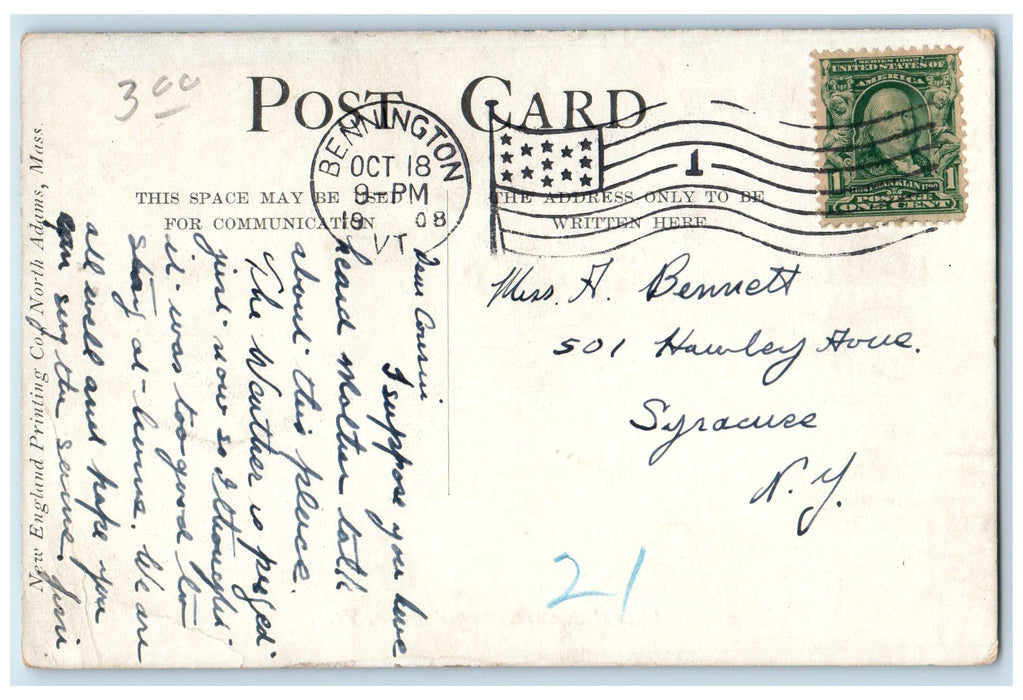 3 00
POST CARD
BENNINGTON
OCT 18
9-PM
19 08
VT
1
SERIES 1902
UNITED STATES OF
AMERICA
1 FRANKLIN 1
POSTAGE
ONE CENT
THIS SPACE MAY BE USED
FOR COMMUNICATION
THE ADDRESS ONLY TO BE
WRITTEN HERE
Dear Cousin
I suppose you have
heard Molten talk
about this place.
The Weather is
just now so I thought
it was too good to
stay at home. We are
all well and hope you
can say the same.
Miss. A. Bennett
501 Hawley Ave.
Syracuse
N.Y.
21
New England Printing Co., North Adams, Mass.